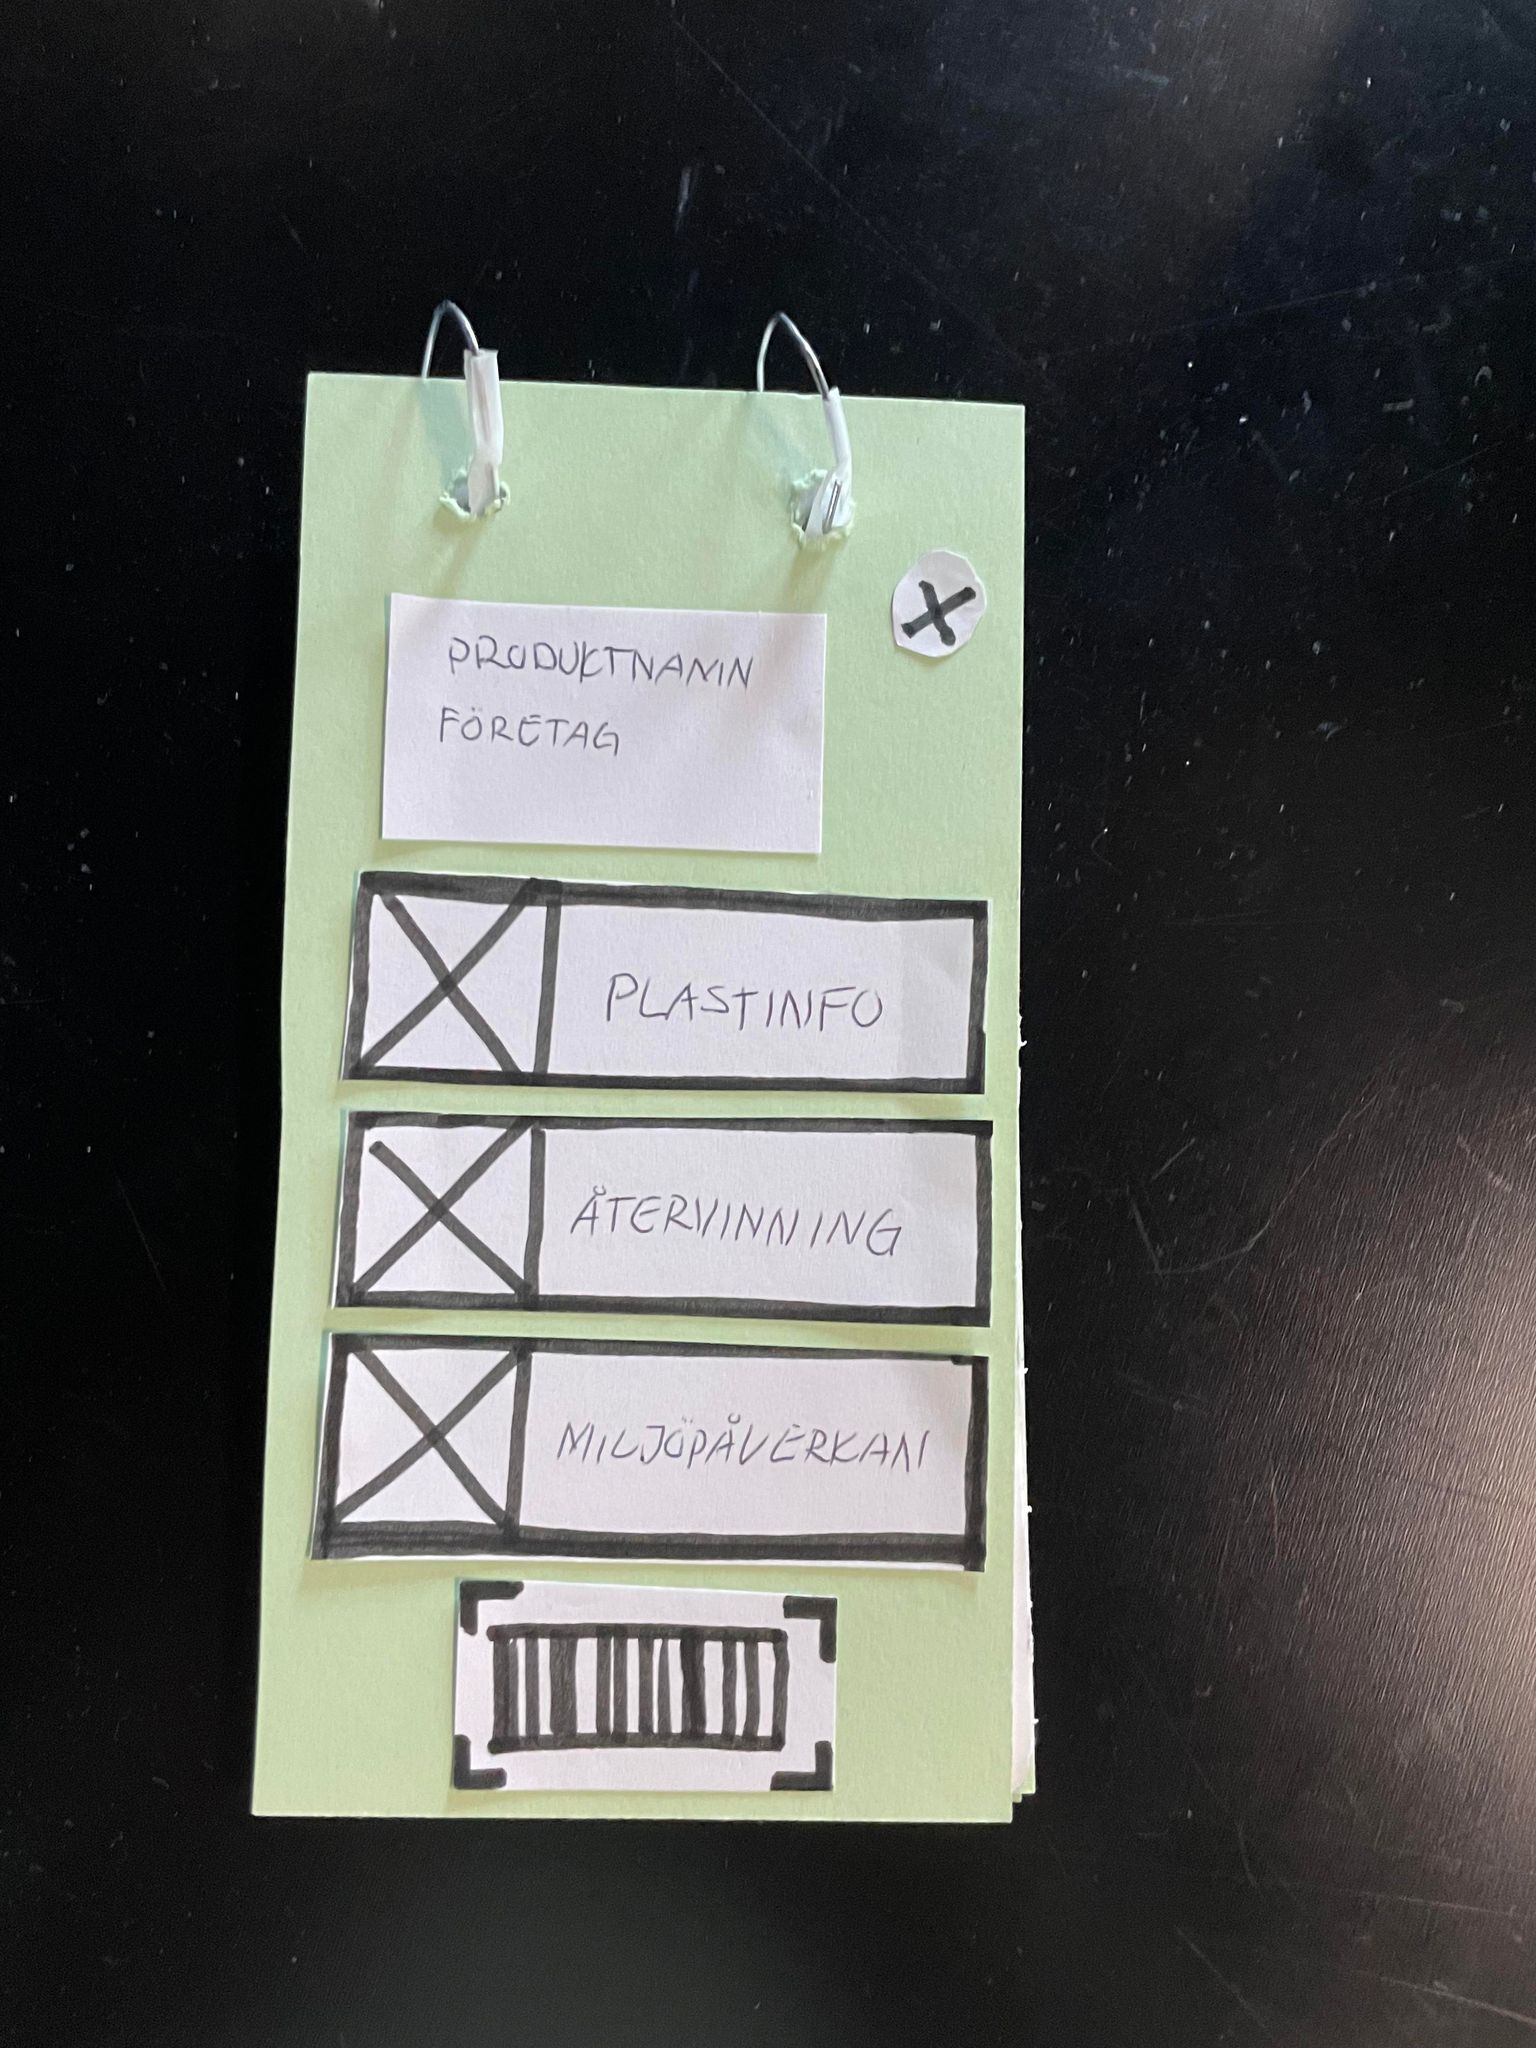 X
PRODUKTNAMN
FÖRETAG
PLASTINFO
ÅTERVINNING
MILJÖPÅVERKAN